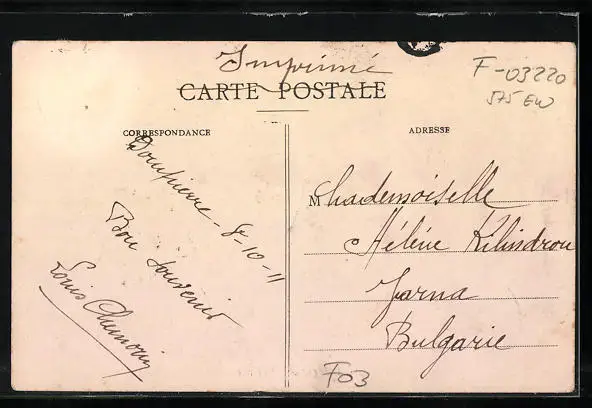 Imprimé
CARTE POSTALE
F-03220
575 EW
CORRESPONDANCE
ADRESSE
Dompierre - 8-10-11
Bon souvenir
Louis
Mademoiselle
Hélène Kilindrou
Varna
Bulgarie
F03